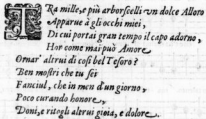 TRa mille, e più arborscelli vn dolce Alloro
Apparue à gli occhi miei,
Di cui portai gran tempo il capo adorno,
Hor come mai può Amore
Ornar' altrui di così bel Tesoro?
Ben mostri che tu sei
Fanciul, che in men d'un giorno,
Poco curando honore,
Doni, e ritogli altrui gioia, e dolore.